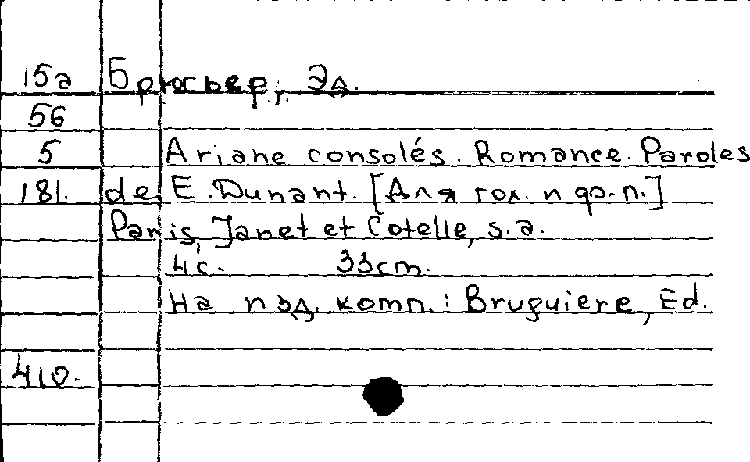 15а Брюсьер, Эд.
56
5 Ariane consolés. Romance. Paroles
181. de E. Dunant. [Для гол. и фо-п.]
Paris, Janet et Cotelle, s.a.
4с. 33cm.
На изд. комп.: Bruguiere, Ed.
410.